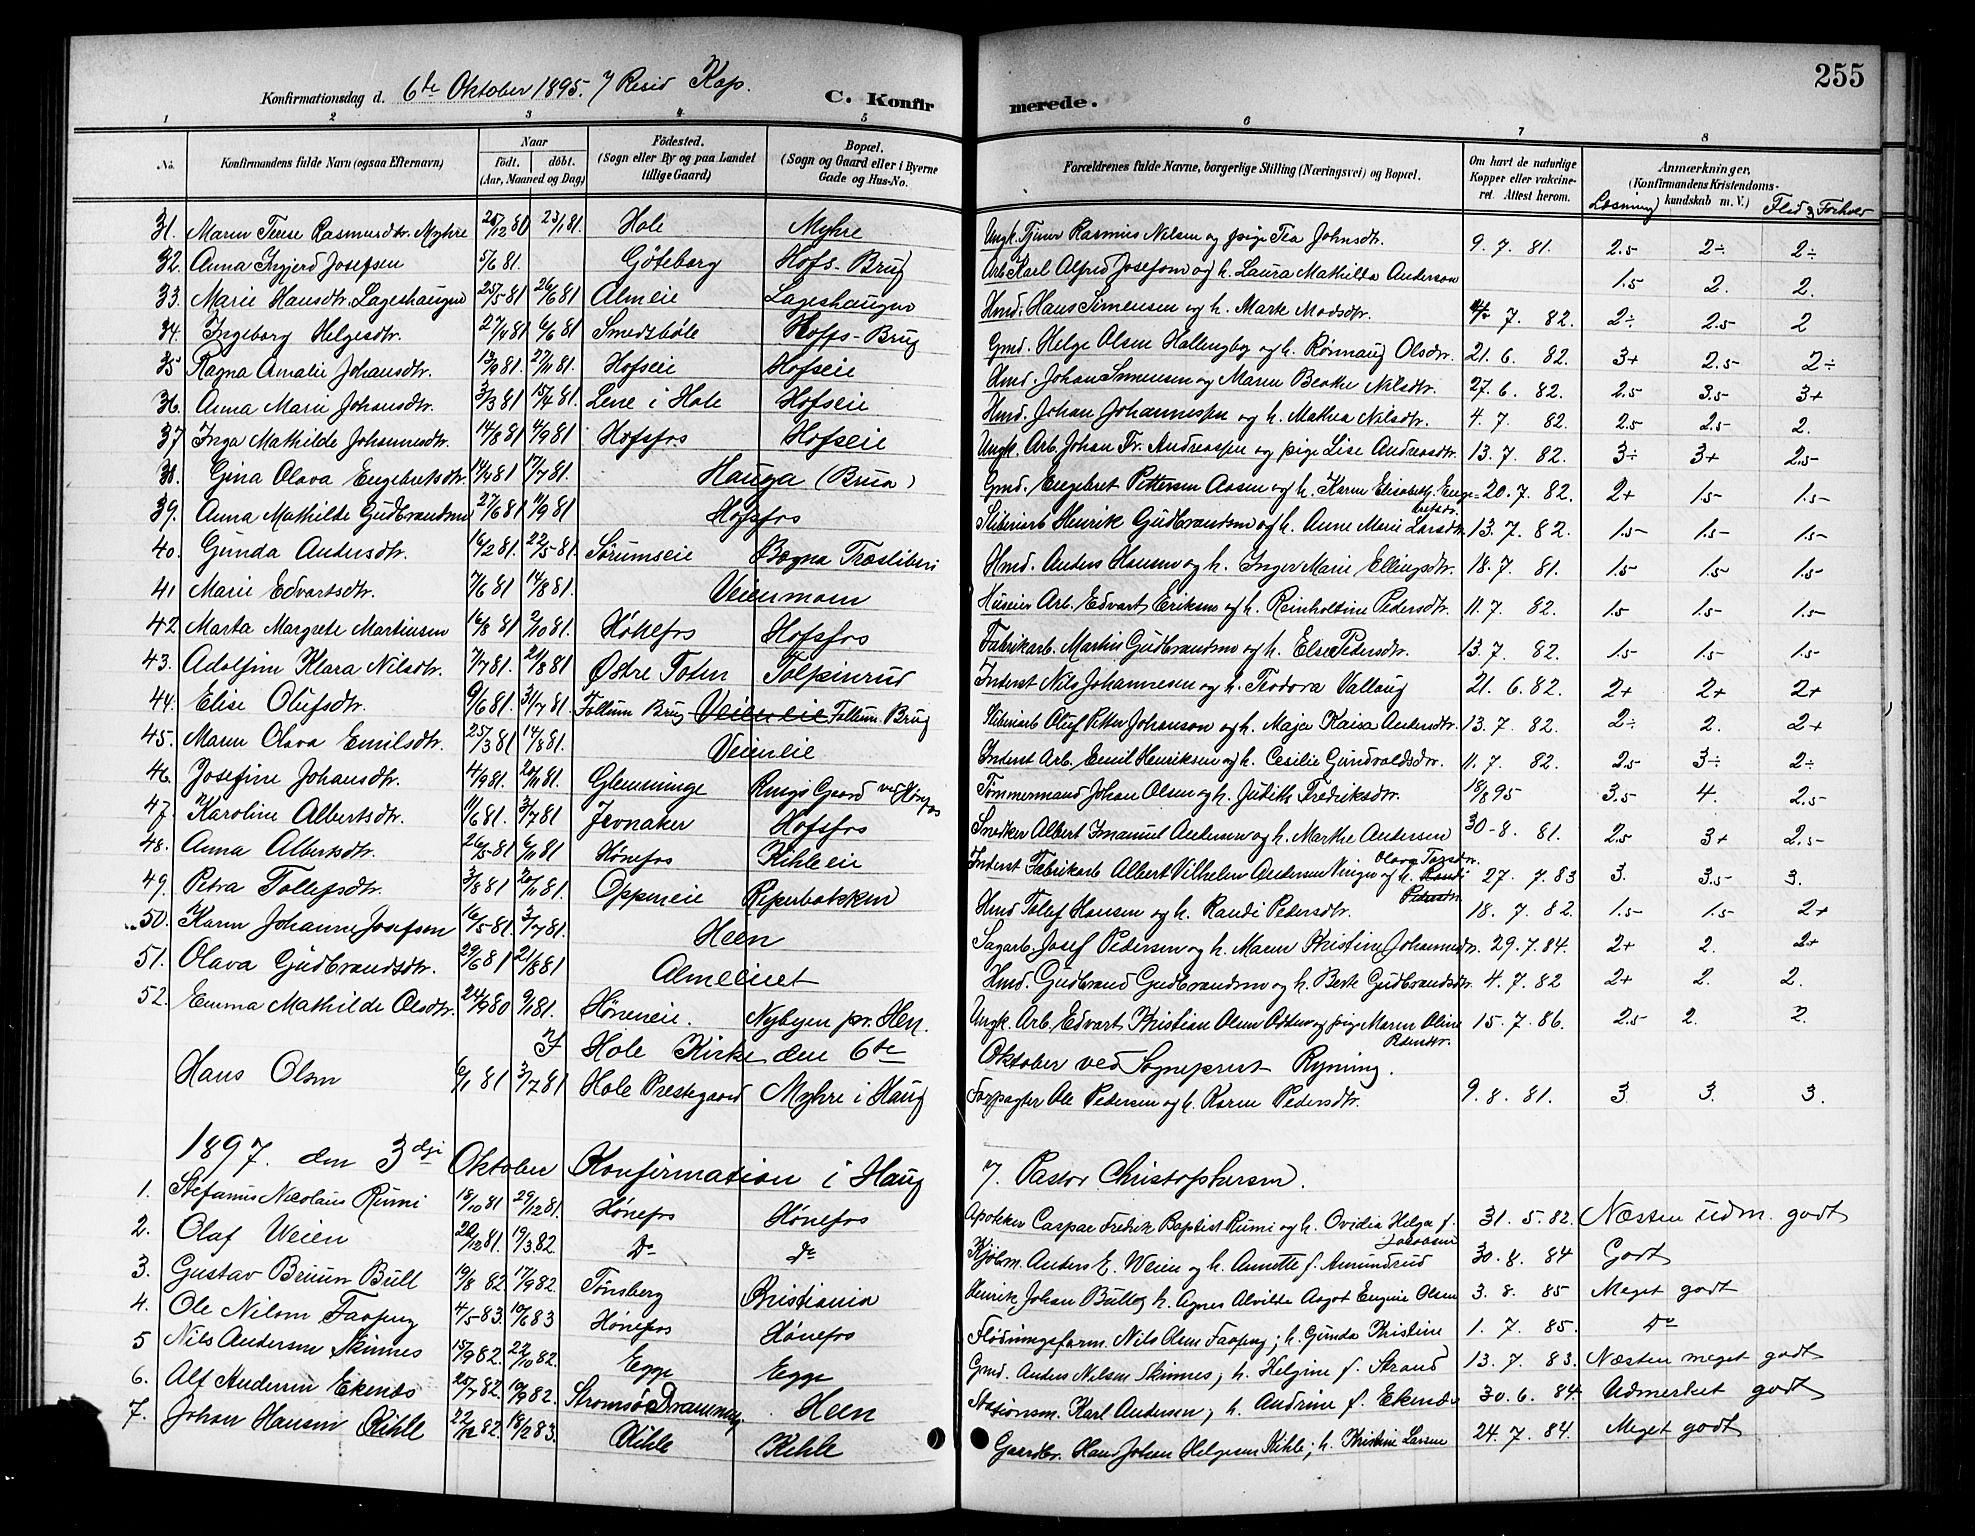 255
Konfirmationsdag d. 6te Oktober 1895. v/ Resid Kap. C. Konfirmerede.
1 2 3 4 5 6 7 8
No. Konfirmandens fulde Navn (ogsaa Efternavn) Naar født. døbt. (Aar, Maaned og Dag) Fødested. (Sogn eller By og paa Landet tillige Gaard) Bopæl. (Sogn og Gaard eller i Byerne Gade og Hus-No. Forældrenes fulde Navne, borgerlige Stilling (Næringsvei) og Bopæl. Om havt de naturlige Kopper eller vakcineret. Attest herom. Anmærkninger, (Konfirmandens Kristendomskundskab m. V.) Læsning Flid & Forhold
31. Maren Terese Rasmusdtr. Myhre 20/12 80 23/1 81. Hole Myhre Ungk. Tjener Rasmus Nilsen og pige Tea Johnsdtr. 9. 7. 81. 2.5 2÷ 2÷
32. Anna Ingjerd Josefsen 5/6 81. Göteborg Hofs-Brug Arb. Karl Alfred Josefson og h. Laura Mathilda Anderson 1.5 2. 2.
33. Marie Hansdtr. Lageshaugen 25/5 81 26/6 81 Almeie Lageshaugen Hmd. Hans Simensen og h. Marte Madsdtr. 7. 82. 2÷ 2.5 2
34. Ingeborg Helgesdtr. 27/4 81 6/6 81 Smedsbøle Hoffs-Brug Gmd. Helge Olsen Hallingby og h. Rønnaug Olsdtr. 21. 6. 82. 3+ 2.5 2÷
35 Ragna Amalie Johansdtr. 13/9 81. 27/11 81. Hofseie Hofseie Hmd. Johan Simensen og Maren Beate Nilsdtr. 27. 6. 82. 2.5 3.5 3+
36. Anna Marie Johansdtr. 3/3 81 15/4 81. Lene i Hole Hofseie Hmd. Johan Johannessen og h. Mathea Nilsdtr. 4. 7. 82. 2.5 2.5 2.
37 Inga Mathilde Johannesdtr. 14/8 81 4/9 81 Hofsfos Hofseie Ungk. Arb. Johan Fr. Andreassen og pige Lise Andreasdtr. 13. 7. 82. 3÷ 3+ 2.5
38. Gina Olava Engebretsdtr. 14/4 81 17/7 81. Hauga (Brua) Gmd. Engebret Pettersen Aasen og h. Karen Elisabeth Engebretsdr. 20. 7. 82. 2+ 1.5 1.5
39. Anna Mathilde Gudbrandsen 27/6 81 11/9 81 Hofsfos Sliberiarb Henrik Gudbrandsen og h. Anne Marie Larsdtr. 13. 7. 82. 1.5 1.5 1.5
40. Gunda Andersdtr. 16/2 81. 22/5 81. Sørumseie Bægna Træsliberi Hmd. Anders Hansen og h. Inger Marie Ellingsdtr. 18. 7. 81. 1.5 1.5 1.5
41 Marie Edvartsdtr. 7/6 81 14/8 81. Veienmoen Huseier Arb. Edvart Eriksen og h. Reinholtine Pedersdtr. 11. 7. 82. 1.5 1.5 1.5
42 Marta Margrete Martinsen 16/8 81 2/10 81. Hønefos Hofsfos Fabrikarb. Martin Gudbrandsen og h. Else Pedersdtr. 13. 7. 82. 1.5 1.5 1.5
43. Adolfine Klara Nilsdtr. 7/7 81. 21/8 81 Østre Toten Tolpinrud Inderst Nils Johannesen og h. Teodora Vallaug 21. 6. 82. 2+ 2+ 2+
44. Elise Olufsdtr. 9/6 81. 31/7 81. Follum Brug Veieneie Follum Brug Sliberiarb Oluf Petter Johanson og h. Maja Kaisa Andersdtr. 13. 7. 82. 2÷ 2. 2+
45. Maren Olava Emilsdtr. 25/3 81 14/8 81. Veieneie Inderst Arb. Emil Henriksen og h. Cesilie Gundvaldsdtr. 11. 7. 82. 2.5 3÷ 2÷
46. Josefine Johansdtr. 4/9 81. 20/11 81. Glemminge Rings Gaard ved Hønefos Tømmermand Johan Olsen og h. Judith Fredriksdtr. 18/8 95 3.5 4. 2.5
47. Karoline Albertsdtr. 11/6 81. 3/7 81 Jevnaker Hofsfos Snedker Albert Imanuel Andersen og h. Marthe Andersen 30-8. 81. 2.5 3+ 2.5
48. Anna Albertsdtr. 26/5 81 6/11 81 Hønefos Kihleeie Inderst Fabrikarb Albert Vilhelm Andersen Ninger og h. Randi Pedersdtr Olava Torsdtr. 27. 7. 83 3. 3.5 3.
49. Petra Tollefsdtr. 3/8 81 20/11 81. Oppeneie Reperbakken Hmd Tolef Hansen og h. Randi Pedersdtr. 18. 7. 82. 1.5 1.5 2+
50. Karen Johanne Josefsen 16/5 81. 3/7 81. Heen Sagarb. Josef Pedersen og h. Maren Kristine Johannesdtr. 29. 7. 84. 2+ 2. 2+
51. Olava Gudbrandsdtr. 29/6 81 21/8 81 Almeeiet Hmd. Gudbrand Gudbrandsen og h. Berte Gudbrandsdtr. 4. 7. 82 2+ 2. 2.
52. Emma Mathilde Olsdtr. 24/9 80 9/1 81. Høneneie. Nybyen pr. Hen. Ungk. Arb. Edvart Kristian Olsen og pige Maren Oline Pedersdtr. 15. 7. 86. 2.5 2. 2.
I Hole Kirke den 6te Oktober ved Sogneprest Ryning.
Hans Olsen 6/1 81 3/7 81 Hole Prestegaard Myhre i Haug Forpagter Ole Pedersen og h. Karen Pedersdtr. 9. 8. 81. 3 3. 3.
1897. den 3die Oktober Konfirmation i Haug v/. Pastor Christophersen.
1. Stefanus Nicolaus Rumi 18/10 81 29/12 81. Hønefos Hønefos Apotheker Caspar Fredrik Baptist Rumi og h. Ovidia Helga f. Jacobsen 31. 5. 82. Næsten udm. godt
2. Olaf Weien 20/12 81. 19/3 82. Do do Kjøbm. Anders E. Weien og h. Annette f. Amundrud 30. 8. 84 Godt
3. Gustav Bruun Bull 19/8 82 17/9 82. Tønsberg Kristiania Henrik Johan Bull og h. Agnes Alvilde Aagot Eugenie Olsen 3. 8. 85 Meget godt
4. Ole Nilsen Faapeng 4/5 83. 10/6 83 Hønefos Hønefos Flødningsform. Nils Olsen Faapeng; h. Gunda Kristine 1. 7. 85. do
5 Nils Andersen Skinnes 15/9 82. 22/10 82. Egge Egge Gmd. Anders Nilsen Skinnes; h. Helgine f. Strand 13. 7. 83. Næsten meget godt
6. Alf Andersen Ekenæs 20/7 82. 10/9 82. Strømsø Drammen Heen Stationsm. Karl Andersen; h. Andrine f. Ekenæs 30. 6. 84. Udmerket godt
7. Johan Hansen Kihle 22/12 82. 18/2 83. Kihle Kihle Gaardbr. Hans Johan Helgesen Kihle; h. Kristine Larsen 24. 7. 84. Meget godt